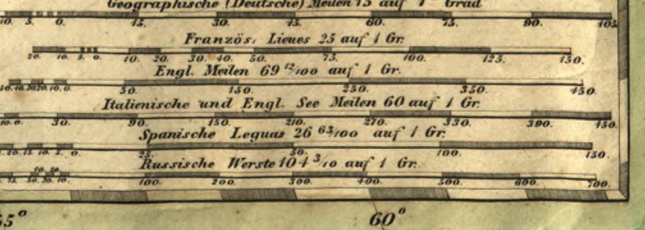 Geographische (Deutsche) Meilen 15 auf 1 Grad
5. 0. 15. 30. 45. 60. 75. 90. 105.
Französ. Lieues 25 auf 1 Gr.
20. 10. 5. 0. 10. 20. 30. 40. 50. 75. 100. 125. 150.
Engl. Meilen 69 12/100 auf 1 Gr.
10. 0. 50. 150. 250. 350. 450.
Italienische und Engl. See Meilen 60 auf 1 Gr.
0. 30. 90. 150. 210. 270. 330. 390. 450.
Spanische Leguas 26 63/100 auf 1 Gr.
20. 15. 10. 5. 0. 25. 50. 100. 150.
Russische Werste 104 3/10 auf 1 Gr.
100. 200. 300. 400. 500. 600. 700.
55° 60°